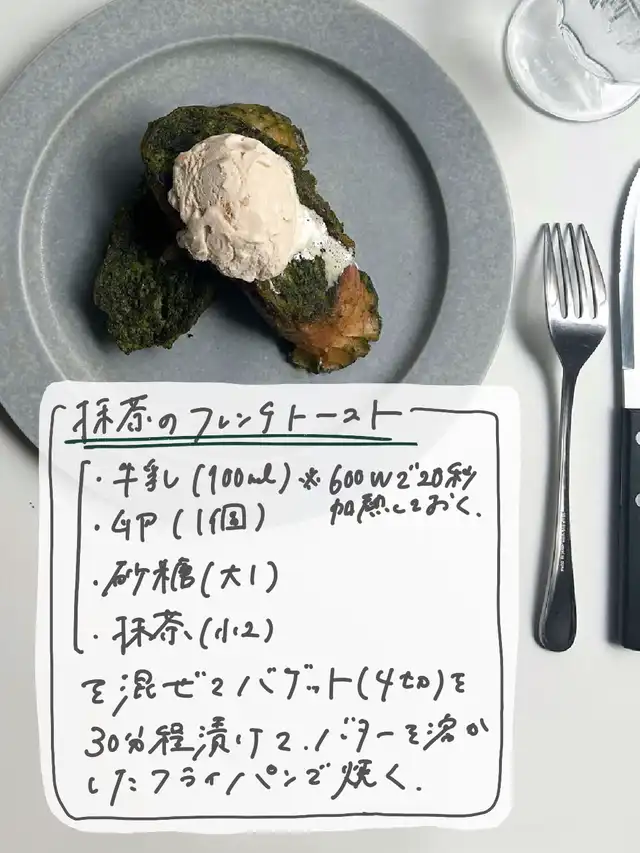 抹茶のフレンチトースト
・牛乳(100ml)※600Wで20秒
加熱しておく.
・卵(1個)
・砂糖(大1)
・抹茶(小2)
を混ぜてバゲット(4切)を
30分程漬けて.バターを溶か
したフライパンで焼く.